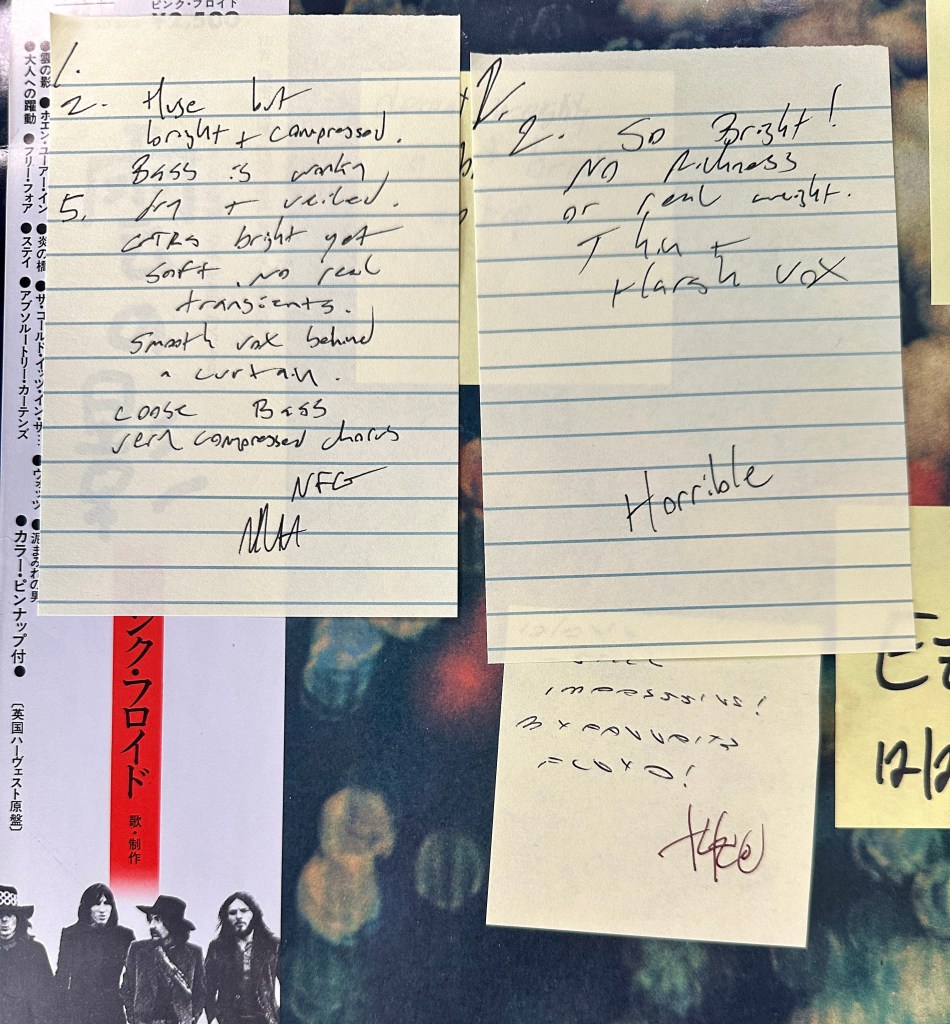 ピンク・フロイド
¥2,500
●雲の影 ●ホエン・ユーアー・イン
●大人への躍動 ●フリー・フォア
●炎の橋 ●ザ・ゴールド・イッツ・イン・ザ…
●ステイ ●アブソルートリー・カーテンズ
●ウォッツ
●泥まみれの男
●カラー・ピンナップ付●
〔英国ハーヴェスト原盤〕
ンク・フロイド
歌・制作
1.
2. Huge but
bright + compressed.
Bass is wonky
5. dry + veiled.
GTRs bright yet
soft. no real
transients.
smooth vox behind
a curtain.
Loose Bass
very compressed chorus
NFG
2. So Bright!
No Richness
or real weight.
Thin +
Harsh vox
Horrible
12/2